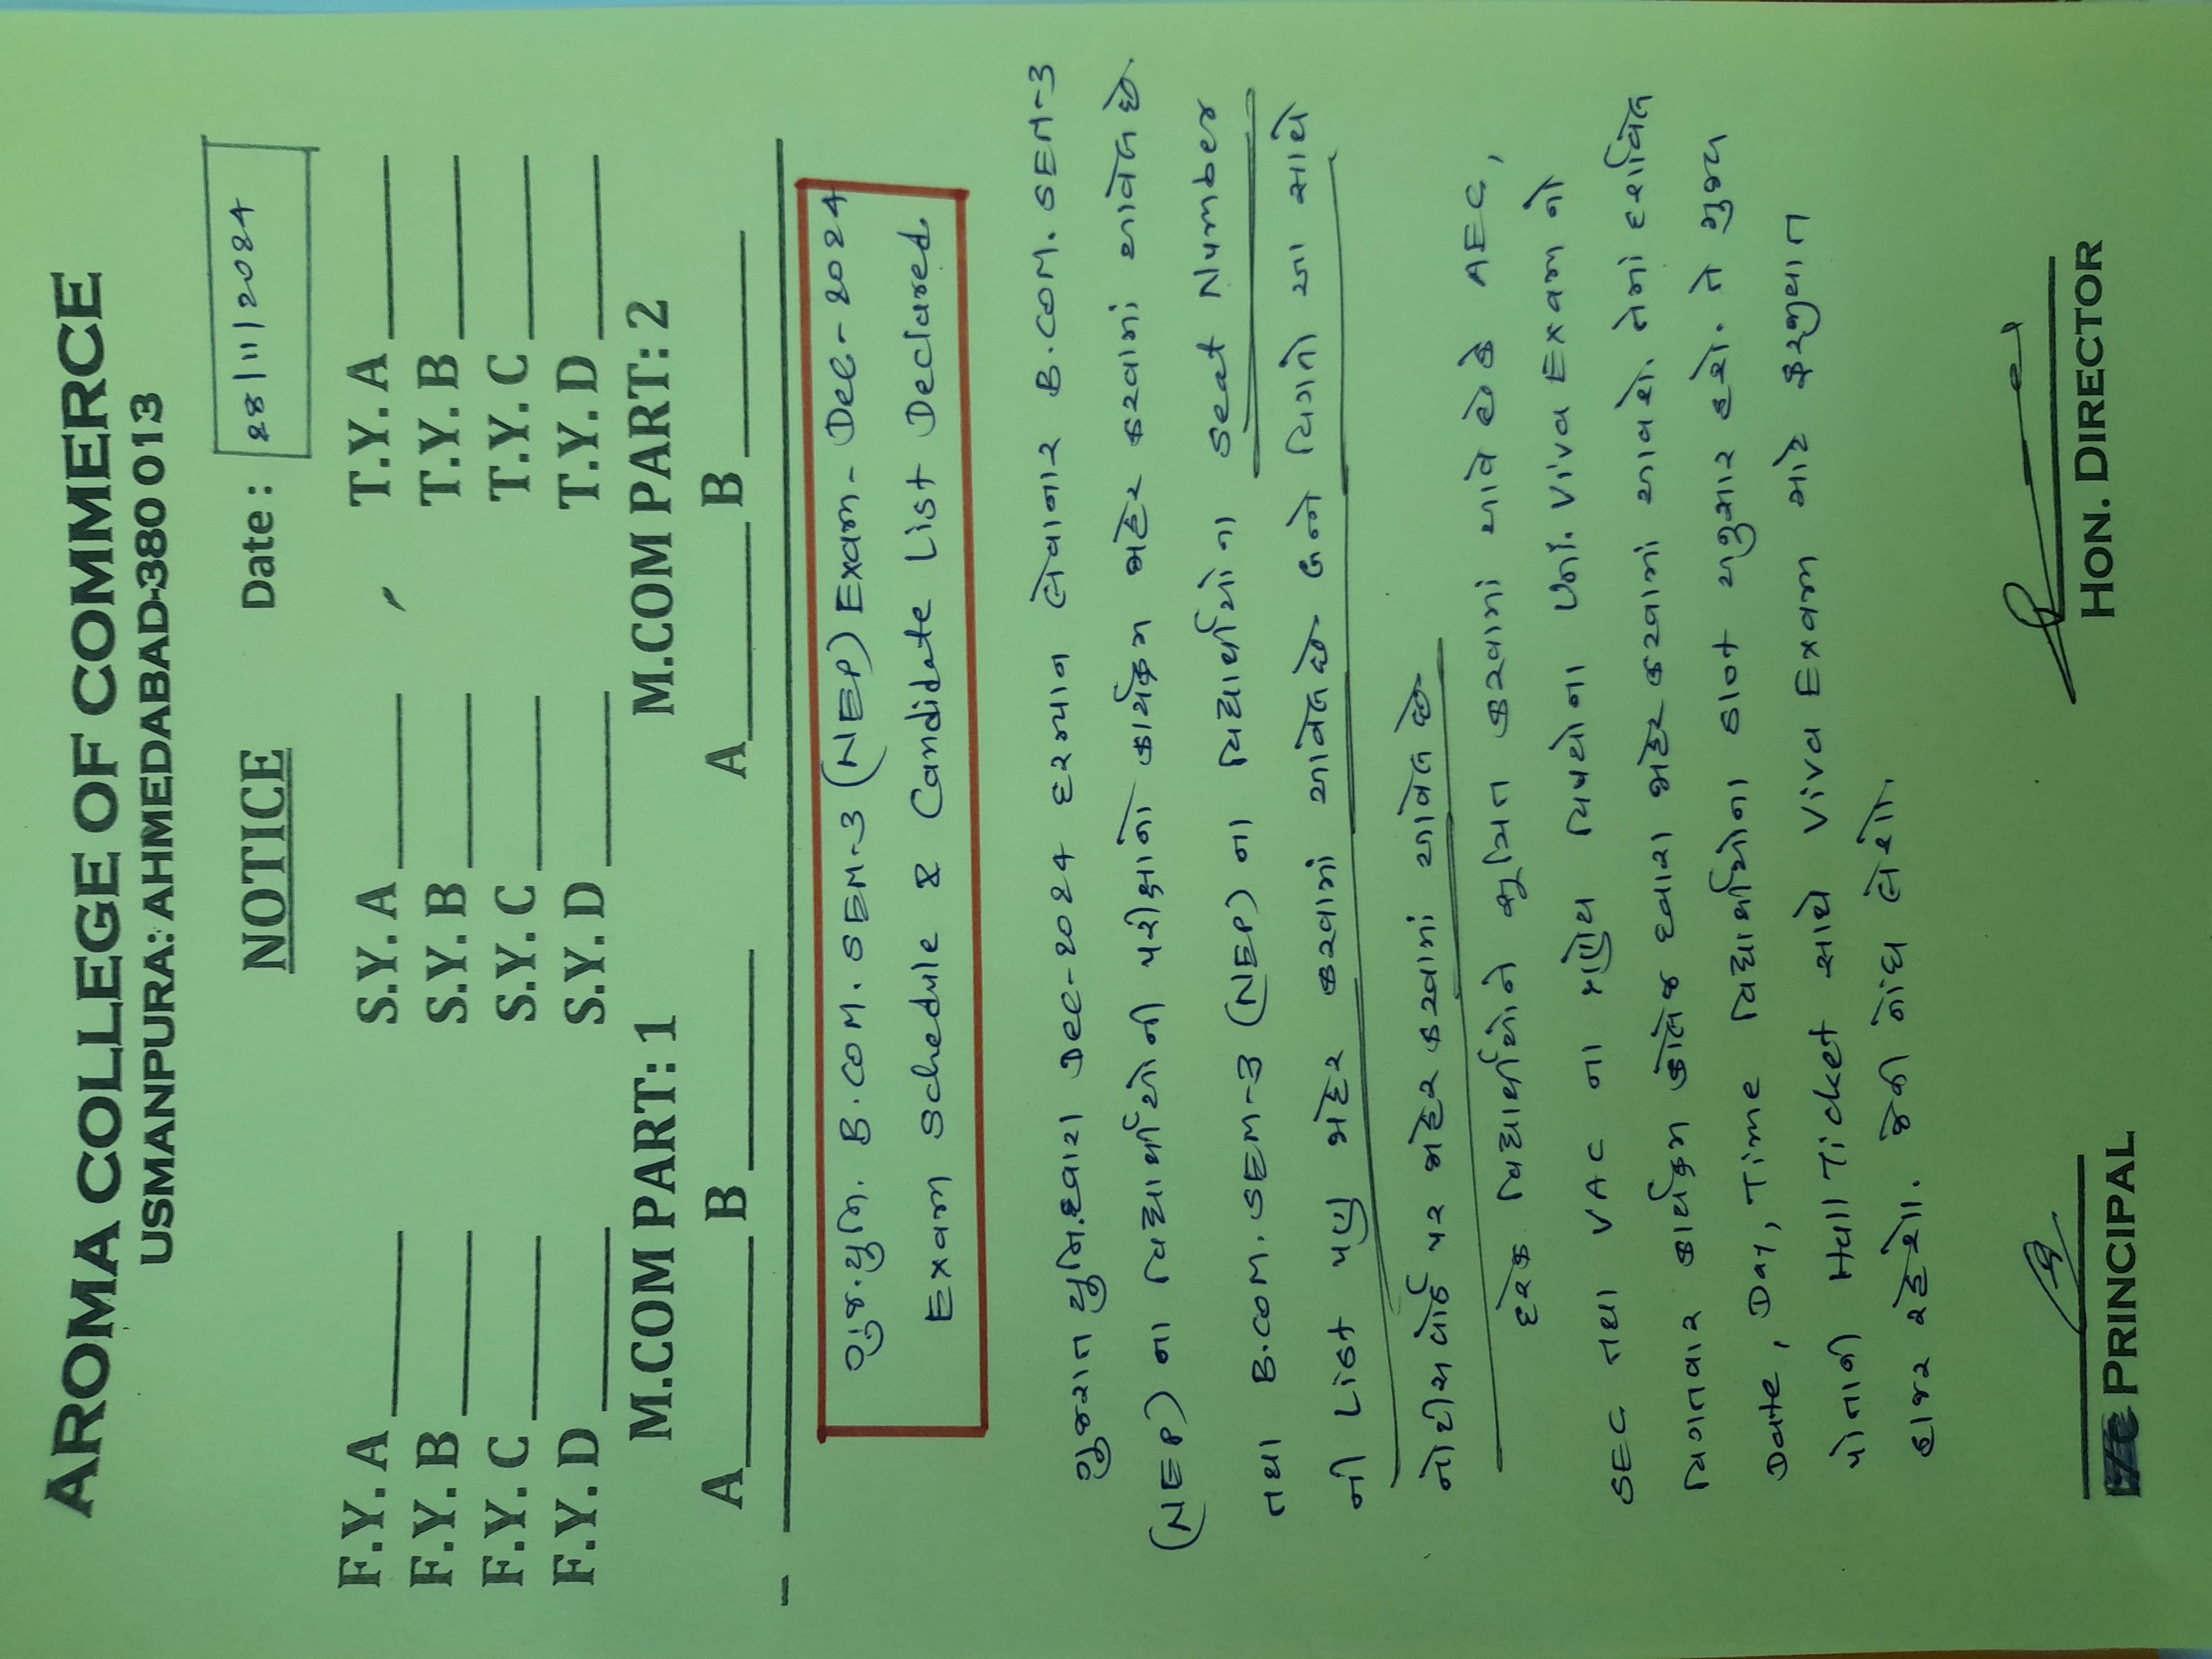 AROMA COLLEGE OF COMMERCE
USMANPURA: AHMEDABAD-380 013
NOTICE Date: 28/11/2024
F.Y. A S.Y. A T.Y. A
F.Y. B S.Y. B T.Y. B
F.Y. C S.Y. C T.Y. C
F.Y. D S.Y. D T.Y. D
M.COM PART: 1 M.COM PART: 2
A B A B
ગુજ.યુનિ. B.COM. SEM-3 (NEP) Exam - Dec-2024
Exam Schedule & Candidate List Declared.
ગુજરાત યુનિ.દ્વારા Dec-2024 દરમ્યાન લેવાનાર B.COM. SEM-3
(NEP) ના વિદ્યાર્થીઓની પરીક્ષાનો કાર્યક્રમ જાહેર કરવામાં આવેલ છે.
તથા B.COM. SEM-3 (NEP) ના વિદ્યાર્થીઓના Seat Number
ની List પણ જાહેર કરવામાં આવેલ છે. બન્ને વિગતો આ સાથે
નોટીસબોર્ડ પર જાહેર કરવામાં આવેલ છે.
દરેક વિદ્યાર્થીઓને સૂચિત કરવામાં આવે છે કે AEC,
SEC તથા VAC ના ત્રણેય વિષયોના Viva Exam નો
વિગતવાર કાર્યક્રમ કોલેજ દ્વારા જાહેર કરવામાં આવશે. તેમાં દર્શાવેલ
Date, Day, Time વિદ્યાર્થીઓના slot અનુસાર હશે. તે મુજબ
પોતાની Hall Ticket સાથે Viva Exam માટે ફરજીયાત
હાજર રહેશો. જેની નોંધ લેશો.
I/C PRINCIPAL HON. DIRECTOR